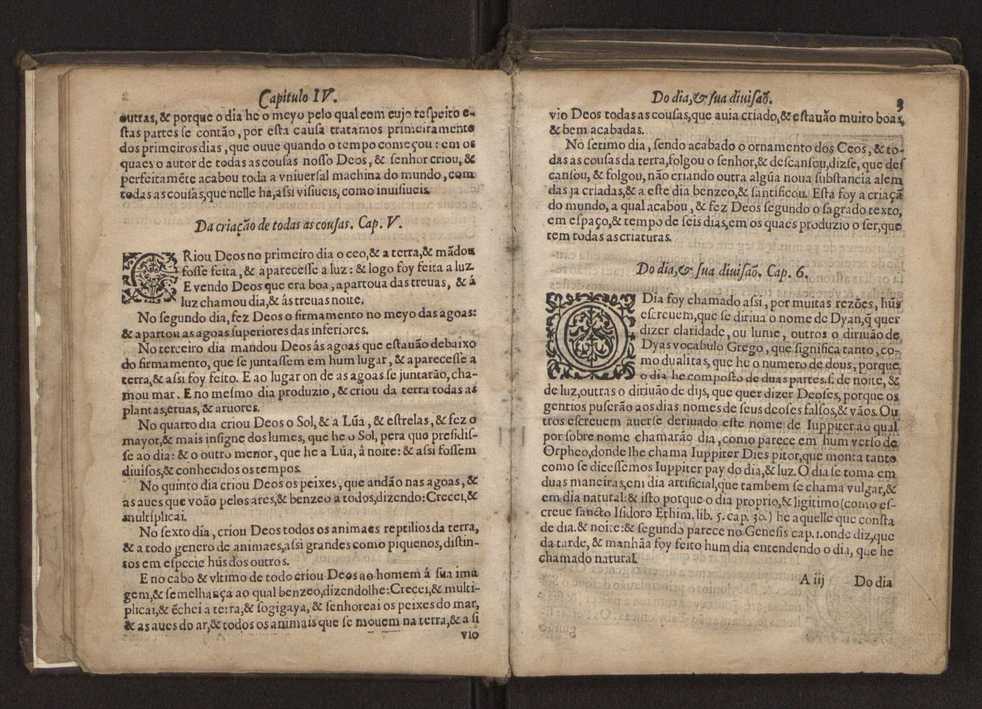 Capitulo IV.
outras, & porque o dia he o meyo pelo qual com cujo respeito e-
stas partes se contão, por esta causa tratamos primeiramente
dos primeiros dias, que ouue quando o tempo começou: em os
quaes o autor de todas as cousas nosso Deos, & senhor criou, &
perfeitamẽte acabou toda a vniuersal machina do mundo, com
todas as cousas, que nelle ha, assi visiueis, como inuisiueis.
Da criação de todas as cousas. Cap. V.
CRiou Deos no primeiro dia o ceo, & a terra, & mãdou
fosse feita, & aparecesse a luz: & logo foy feita a luz
E vendo Deos que era boa, apartoua das treuas, & á
luz chamou dia, & ás treuas noite.
No segundo dia, fez Deos o firmamento no meyo das agoas:
& apartou as agoas superiores das inferiores.
No terceiro dia mandou Deos ás agoas que estauão debaixo
do firmamento, que se juntassem em hum lugar, & aparecesse a
terra, & assi foy feito. E ao lugar onde as agoas se juntarão, cha-
mou mar. E no mesmo dia produzio, & criou da terra todas as
plantas, eruas, & aruores.
No quarto dia criou Deos o Sol, & a Lũa, & estrelas, & fez o
mayor, & mais insigne dos lumes, que he o Sol, pera que presidis-
se ao dia: & o outro menor, que he a Lũa, à noite: & assi fossem
diuisos, & conhecidos os tempos.
No quinto dia criou Deos os peixes, que andão nas agoas, &
as aues que voão pelos ares, & benzeo a todos, dizendo: Crecei, &
multiplicai.
No sexto dia, criou Deos todos os animaes reptilios da terra,
& a todo genero de animaes, assi grandes como piquenos, distin-
tos em especie hũs dos outros.
E no cabo & vltimo de todo criou Deos ao homem á sua ima
gem, & semelhãça ao qual benzeo, dizendolhe: Crecei, & multi-
plicai, & ẽchei a terra, & sogigaya, & senhoreai os peixes do mar,
& as aues do ar, & todos os animais que se mouem na terra, & a si
vio
Do dia, & sua diuisaõ. 3
vio Deos todas as cousas, que auia criado, & estauão muito boas,
& bem acabadas.
No setimo dia, sendo acabado o ornamento dos Ceos, & to-
das as cousas da terra, folgou o senhor, & descansou, dizse, que des
cansou, & folgou, não criando outra algũa noua substancia alem
das ja criadas, & a este dia benzeo, & santificou. Esta foy a criaçã
do mundo, a qual acabou, & fez Deos segundo o sagrado texto,
em espaço, & tempo de seis dias, em os quaes produzio o ser, que
tem todas as criaturas.
Do dia, & sua diuisaõ. Cap. 6.
O Dia foy chamado assi, por muitas rezões, hũs
escreuem, que se diriua o nome de Dyan, q̃ quer
dizer claridade, ou lume, outros o diriuão de
Dyas vocabulo Grego, que significa tanto, co-
mo dualitas, que he o numero de dous, porque
o dia he composto de duas partes. s. de noite, &
de luz, outras o diriuão de dijs, que quer dizer Deoses, porque os
gentios puserão aos dias nomes de seus deoses falsos, & vãos. Ou
tros escreuem auerse deriuado este nome de Iuppiter ao qual
por sobre nome chamarão dia, como parece em hum verso de
Orpheo, donde lhe chama Iuppiter Dies pitor, que monta tanto
como se dicessemos Iuppiter pay do dia, & luz. O dia se toma em
duas maneiras, em dia artificial, que tambem se chama vulgar, &
em dia natural: & isto porque o dia proprio, & ligitimo (como es-
creue sancto Isidoro Ethim. lib. 5. cap. 30.) he aquelle que consta
de dia. & noite: & segundo parece no Genesis cap. 1. onde diz, que
da tarde, & manhãa foy feito hum dia entendendo o dia, que he
chamado natural.
A iij Do dia